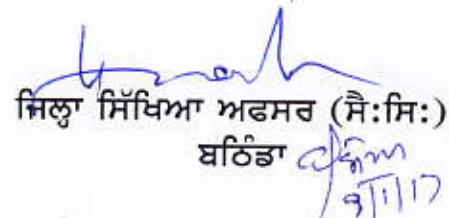 ਜਿਲ੍ਹਾ ਸਿੱਖਿਆ ਅਫਸਰ (ਸੈ:ਸਿ:)
ਬਠਿੰਡਾ
9/1/17